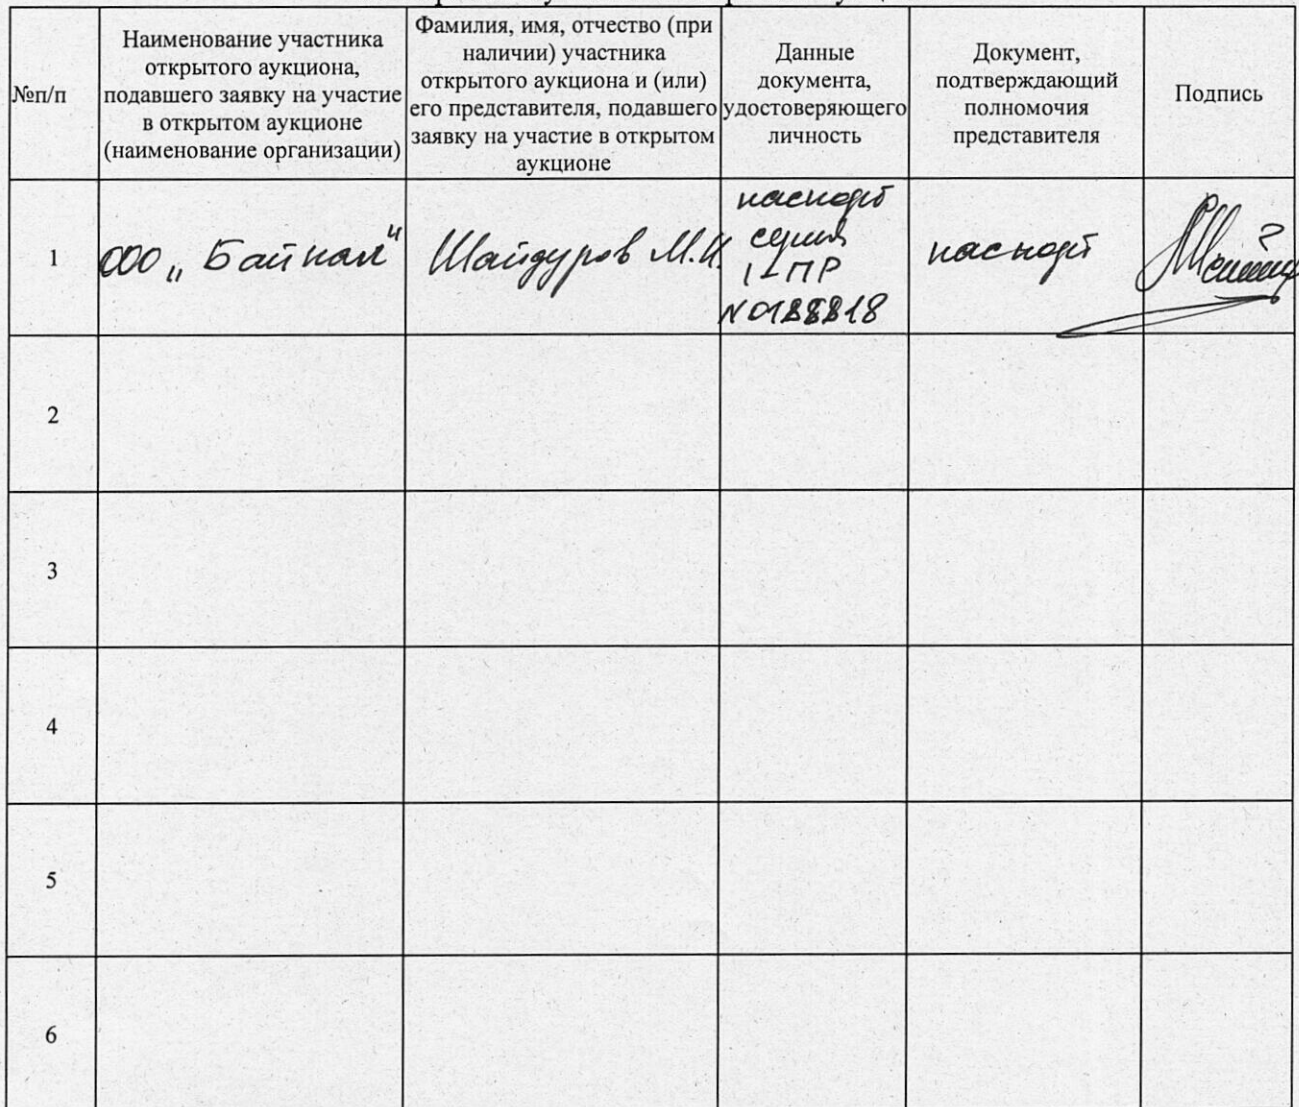 №п/п
Наименование участника
открытого аукциона,
подавшего заявку на участие
в открытом аукционе
(наименование организации)
Фамилия, имя, отчество (при
наличии) участника
открытого аукциона и (или)
его представителя, подавшего
заявку на участие в открытом
аукционе
Данные
документа,
удостоверяющего
личность
Документ,
подтверждающий
полномочия
представителя
Подпись
1
ООО „Байкал"
Шайдуров М.И.
паспорт
серия
ПР
паспорт
2
3
4
5
6